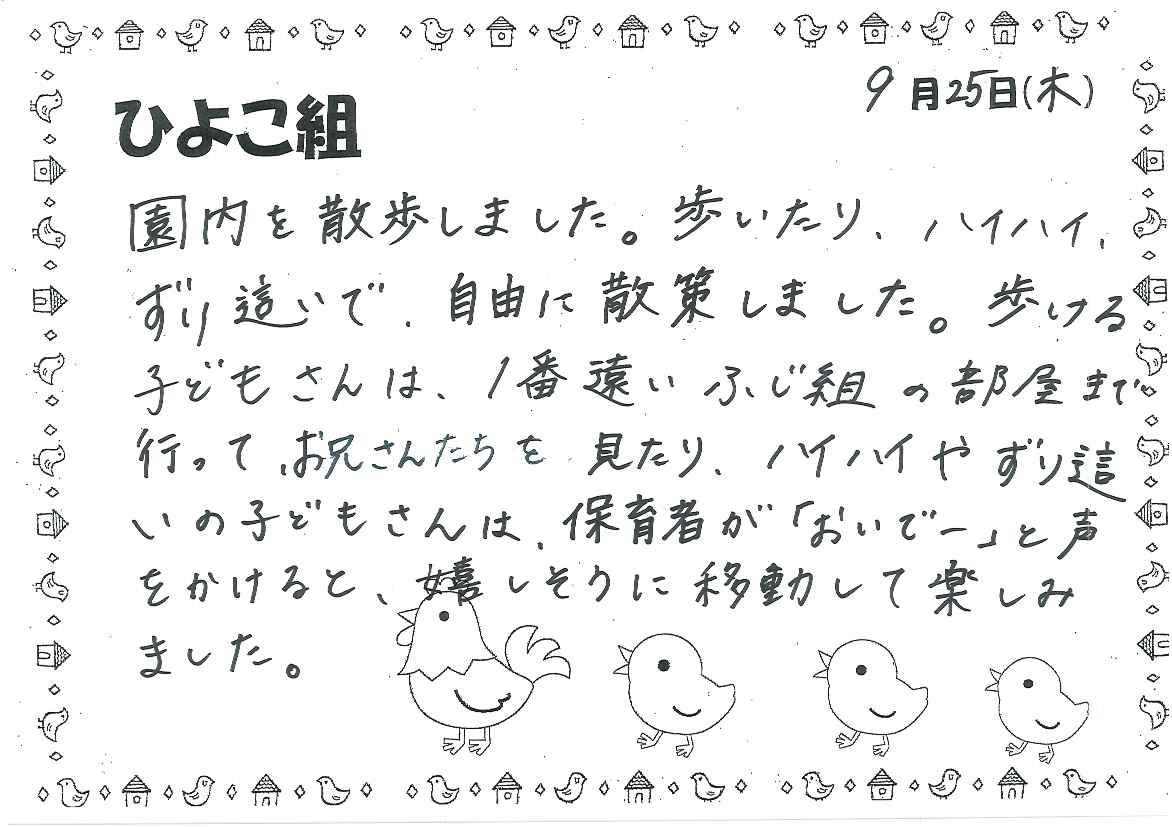 9月25日(木)
ひよこ組
園内を散歩しました。歩いたり、ハイハイ、
ずり這いで、自由に散策しました。歩ける
子どもさんは、1番遠いふじ組の部屋まで
行って、お兄さんたちを見たり、ハイハイやずり這
いの子どもさんは、保育者が「おいでー」と声
をかけると、嬉しそうに移動して楽しみ
ました。